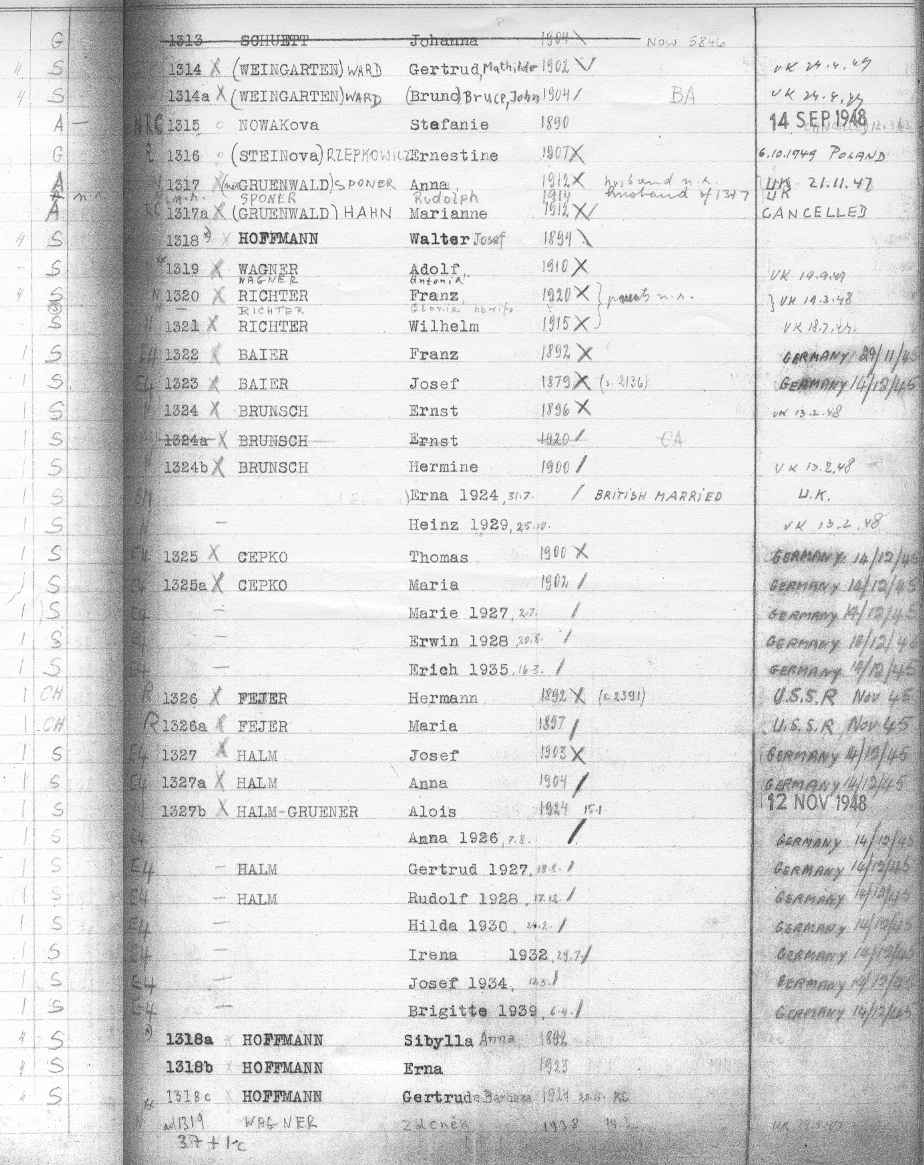 G 1313 SCHUETT Johanna 1904 NOW 5846
S 1314 X (WEINGARTEN) WARD Gertrud, Mathilde 1902 X/ UK 29.4.49
S 1314a X (WEINGARTEN) WARD (Bruno) Bruce, John 1904 / BA UK 29.4.49
A — NRC 1315 o NOWAKova Stefanie 1890 14 SEP 1948
G 1316 o (STEINova) RZEPKOWICZ Ernestine 1907 X 6.10.1949 POLAND
A 1317 X GRUENWALD) SPONER Anna 1912 X husband n.r. UK 21.11.47
n.r. SPONER Rudolph 1914 husband of 1317 UK
A 1317a X (GRUENWALD) HAHN Marianne 1912 X/ CANCELLED
S 1318 X HOFFMANN Walter Josef 1894 \
S 1319 X WAGNER Adolf 1910 X UK 19.9.49
WAGNER Antonia
S 1320 X RICHTER Franz 1920 X } parents n.r. } UK 19.3.48
RICHTER
S 1321 X RICHTER Wilhelm 1915 X
1 S E4 1322 X BAIER Franz 1892 X GERMANY 29/11/45
1 S E4 1323 X BAIER Josef 1879 X (s. 2136) GERMANY 14/12/45
1 S 1324 X BRUNSCH Ernst 1896 X UK 13.2.48
1 S 1324a X BRUNSCH Ernst 1920 / CA
1 S 1324b X BRUNSCH Hermine 1900 / UK 13.2.48
1 S Erna 1924, 31.7. / BRITISH MARRIED U.K.
1 S — Heinz 1929, 25.10. UK 13.2.48
1 S E4 1325 X CEPKO Thomas 1900 X GERMANY 14/12/45
S E4 1325a X CEPKO Maria 1902 / GERMANY 14/12/45
1 S E4 — Marie 1927, 2.7. / GERMANY 14/12/45
1 S E4 — Erwin 1928, 20.8. / GERMANY 14/12/45
1 S E4 — Erich 1935, 16.3. / GERMANY 14/12/45
1 CH R 1326 X FEJER Hermann 1892 X (s. 2391) U.S.S.R Nov 45
1 CH R 1326a X FEJER Maria 1897 / U.S.S.R Nov 45
1 S E4 1327 X HALM Josef 1903 X GERMANY 14/12/45
1 S E4 1327a X HALM Anna 1904 / GERMANY 14/12/45
1 S 1327b X HALM-GRUENER Alois 1924 15.1 12 NOV 1948
1 S E4 Anna 1926, 7.8. / GERMANY 14/12/45
1 S E4 — HALM Gertrud 1927, / GERMANY 14/12/45
1 S E4 — HALM Rudolf 1928, 17.12. / GERMANY 14/12/45
1 S E4 — Hilda 1930, 24.2. / GERMANY 14/12/45
1 S E4 — Irena 1932, 29.7. / GERMANY 14/12/45
1 S E4 — Josef 1934, / GERMANY 14/12/45
1 S E4 — Brigitte 1939, 6.4. / GERMANY 14/12/45
S 1318a HOFFMANN Sibylla Anna 1892
S 1318b X HOFFMANN Erna 1923
S 1318c X HOFFMANN Gertrude Barbara 1924
ad 1319 WAGNER Zdenek 1938
37 + 1c